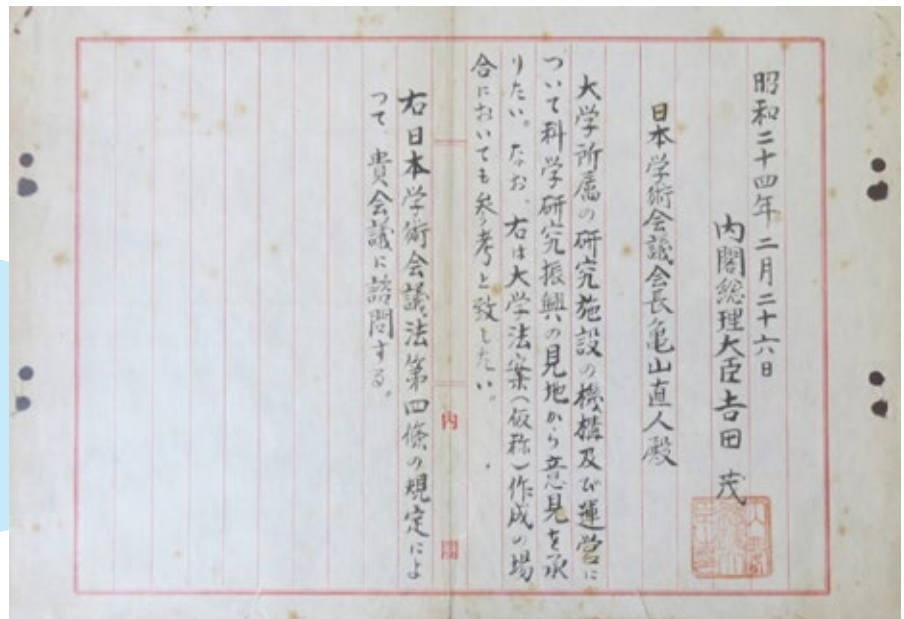 昭和二十四年二月二十六日
内閣総理大臣吉田 茂
日本学術会議会長亀山直人殿
大学所属の研究施設の機構及び運営に
ついて科学研究振興の見地から意見を承
りたい。なお、右は大学法案(仮称)作成の場
合においても参考と致したい。
右日本学術会議法第四條の規定によ
つて、貴会議に諮問する。
内閣